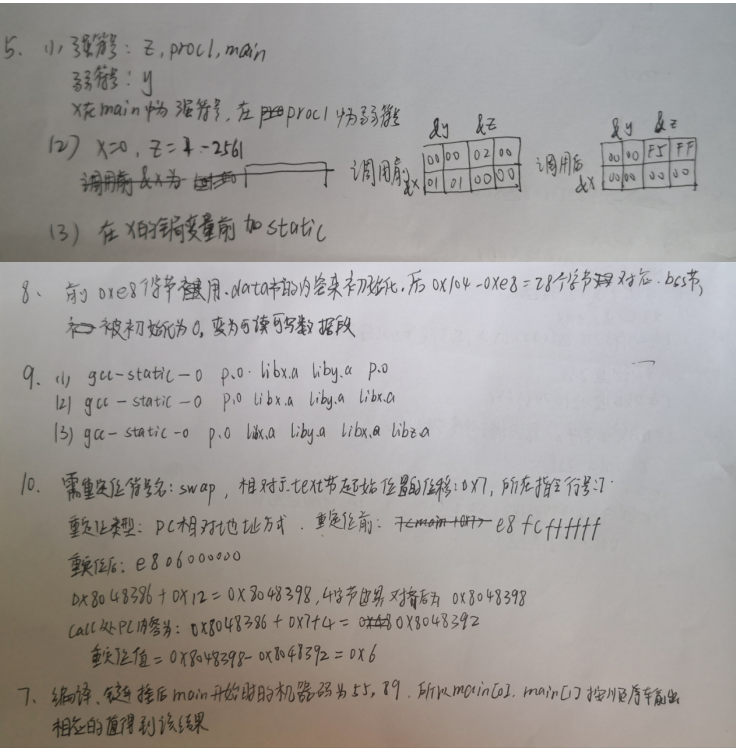 5. (1) 强符号: z, proc1, main
弱符号: y
x在main中为强符号, 在proc1中为弱符号
(2) x=0, z=-2561
调用前 &x
&y &z
00 00 02 00
01 01 00 00
调用后 &x
&y &z
00 00 F5 FF
00 00 00 00
(3) 在x的全局变量前加static
8. 前0xe8字节用.data节的内容来初始化, 后0x104-0xe8=28个字节对应.bss节,
被初始化为0, 变为可读可写数据段
9. (1) gcc-static-o p.o. libx.a liby.a p.o
(2) gcc-static-o p.o libx.a liby.a libx.a
(3) gcc-static-o p.o libx.a liby.a libx.a libz.a
10. 需重定位符号名: swap, 相对于.text节起始位置的位移: 0x7, 所在指令行号:7
重定位类型: PC相对地址方式. 重定位前: e8 fcffffff
重定位后: e8 06000000
0x8048386+0x12=0x8048398, 4字节边界对齐后为 0x8048398
Call处PC内容为: 0x8048386+0x7+4=0x8048392
重定位值=0x8048398-0x8048392=0x6
7. 编译、链接后main开始时的机器码为55, 89. 所以main[0], main[1]按顺序存
相应的值得到该结果